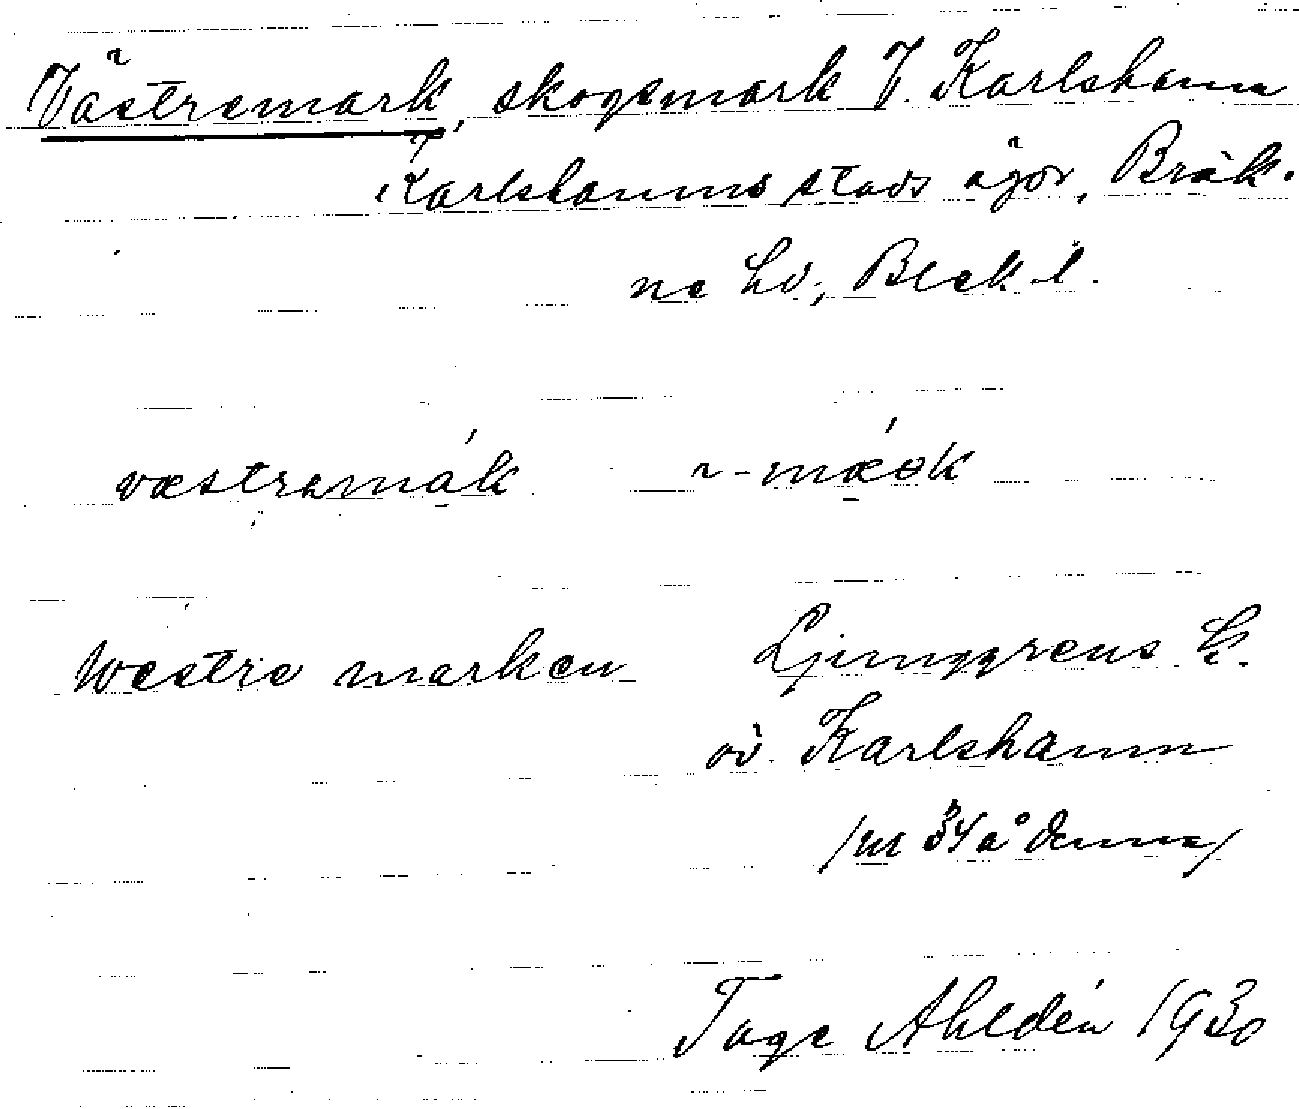 Västremark, skogsmark V. Karlshamn
Karlshamns stads ägor, Bräk-
ne hd., Blek. l.
västramák ~-máək
Westre marken Ljunggrens k.
öv. Karlshamn
/nr 34 å denna/
Tage Ahldén 1930